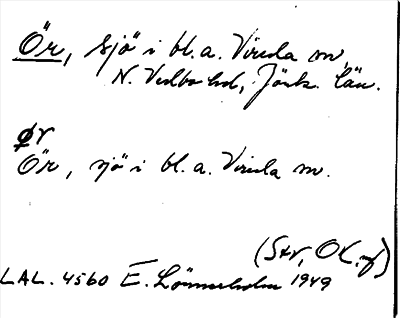 Ör, sjö i bl. a. Virida sn,
N. Vedbo hd, Jönk. län.
ør
Ör, sjö i bl. a. Virida sn.
(Str, OL.
LAL. 4560 E. Lönnerholm 1949